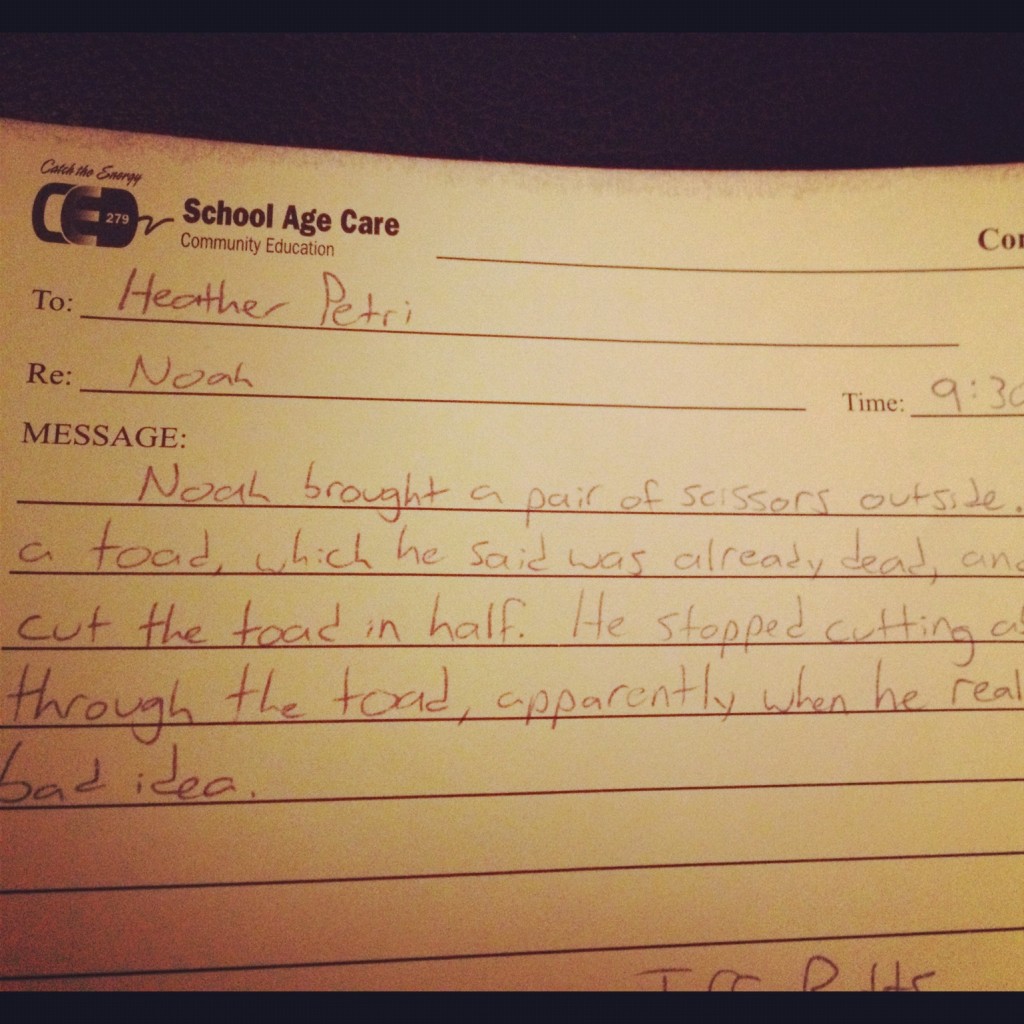 Catch the Energy
CED 279
School Age Care
Community Education
To: Heather Petri
Re: Noah
Time: 9:30
MESSAGE:
Noah brought a pair of scissors outside.
a toad, which he said was already dead, and
cut the toad in half. He stopped cutting
through the toad, apparently when he
bad idea.